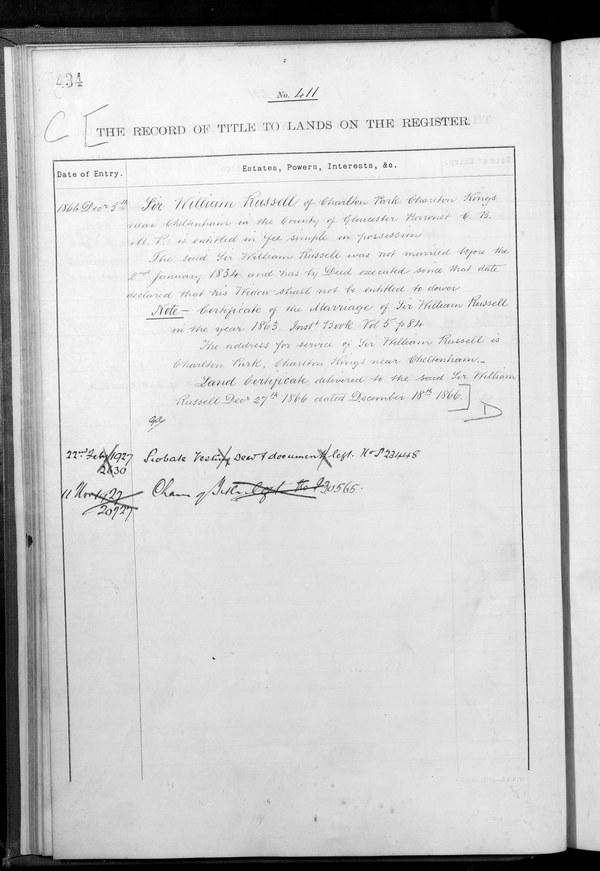 434
No. 411
C E
THE RECORD OF TITLE TO LANDS ON THE REGISTER.
Date of Entry.
Estates, Powers, Interests, &c.
1866 Decr 5th
Sir William Russell of Charlton Park Charlton Kings
near Cheltenham in the County of Gloucester Baronet C. B.
M. P. is entitled in fee simple in possession
The said Sir William Russell was not married before the
2nd January 1834 and has by Deed executed since that date
declared that his Widow shall not be entitled to dower
Note – Certificate of the Marriage of Sir William Russell
in the year 1863 Inst Book Vol 5 p 84
The address for service of Sir William Russell is
Charlton Park, Charlton Kings near Cheltenham.
Land Certificate delivered to the said Sir William
Russell Decr 27th 1866 dated December 18th 1866.]
D
22nd Feby 1927
2630
Probate Vesting Deed & documents Cept. No P 23448
11 Nov 1927
20927
Chain of
P30565